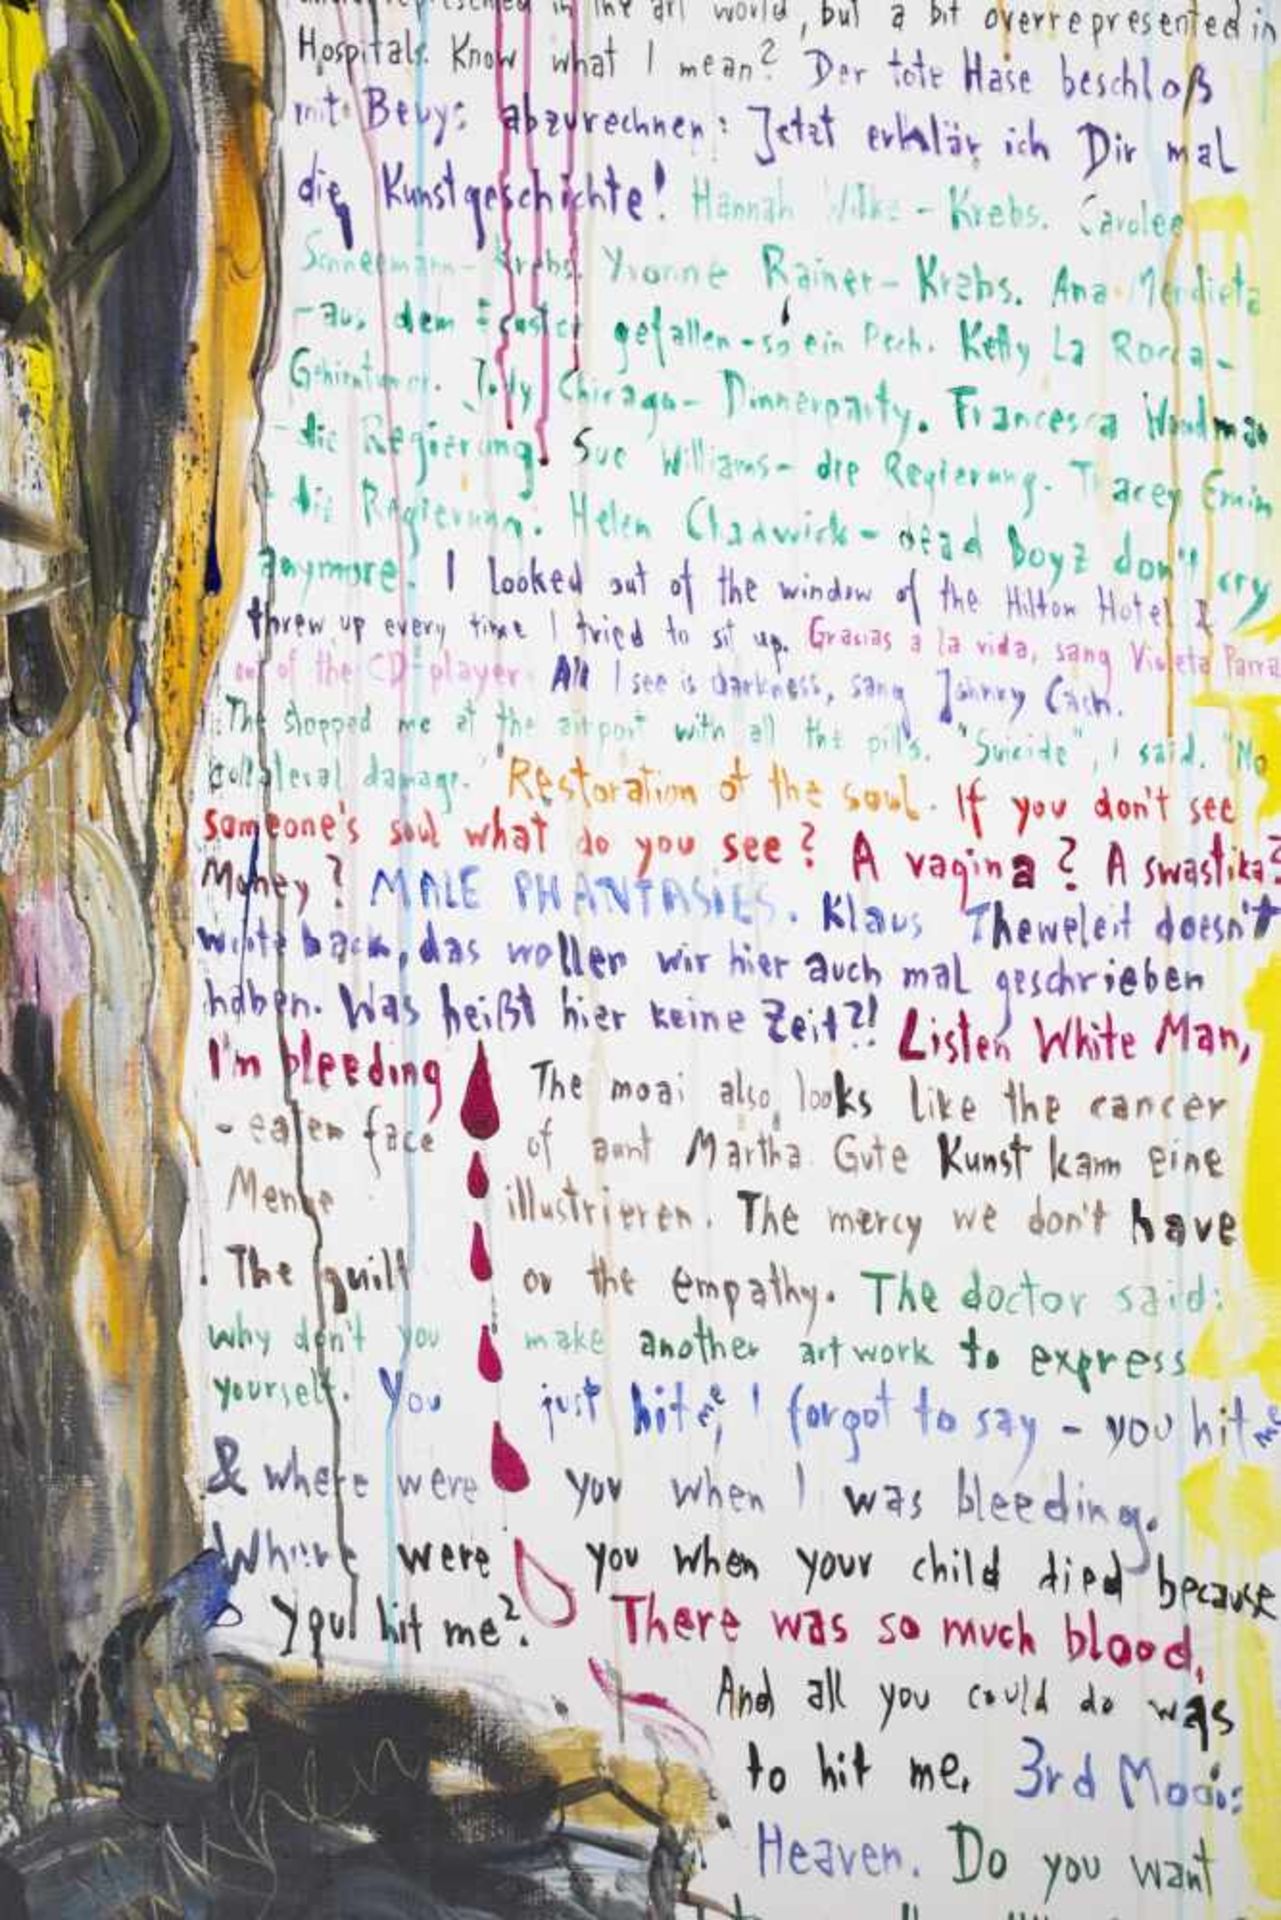 underrepresented in the art world, but a bit overrepresented in
Hospitals. Know what I mean? Der tote Hase beschloß
mit Beuys abzurechnen: Jetzt erklär ich Dir mal
die Kunstgeschichte! Hannah Wilke - Krebs. Carolee
Schneemann - Krebs. Yvonne Rainer - Krebs. Ana Mendieta
- aus dem Fenster gefallen - so ein Pech. Ketty La Rocca -
Gehirntumor. Judy Chicago - Dinnerparty. Francesca Woodman
- die Regierung. Sue Williams - die Regierung. Tracey Emin
- die Regierung. Helen Chadwick - dead boyz don't cry
anymore. I looked out of the window of the Hilton Hotel I
threw up every time I tried to sit up. Grasias a la vida, sang Violeta Parra
out of the CD-player. All I see is darkness, sang Johnny Cash.
The stopped me at the airport with all the pills. "Suicide", I said. "No
collateral damage." Restoration of the soul. If you don't see
someone's soul what do you see? A vagina? A swastika?
Money? MALE PHANTASIES. Klaus Theweleit doesn't
write back, das wollen wir hier auch mal geschrieben
haben. Was heißt hier keine Zeit?! Listen White Man,
I'm bleeding The moai also looks like the cancer
- eaten face of aunt Martha. Gute Kunst kann eine
Menge illustrieren. The mercy we don't have
. The guilt or the empathy. The doctor said:
why don't you make another artwork to express
yourself. You just hit me, I forgot to say - you hit me
& where were you when I was bleeding.
Where were you when your child died because
you hit me? There was so much blood.
And all you could do was
to hit me. 3rd Moai:
Heaven. Do you want